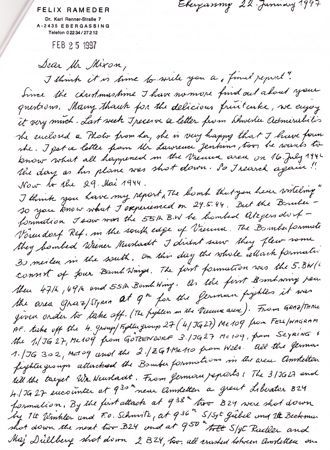 FELIX RAMEDER
Dr. Karl Renner-Straße 7
A-2435 EBERGASSING
Telefon 0 22 34 / 27 2 12
FEB 25 1997
Ebergassing 22. January 1997
Dear Mr Mixon,
I think it is time to write you a "final report".
Since the christmastime I have no more find out about your
questions. Many thanks for the delicious fruitcake, we enjoy
it very much. Last week I receive a letter from
she enclosed a Photo from her, she is very happy that I have
she. I got a letter from Mr Lawrence Jenkins, too, he wants to
know what all happened in the Vienna area on 16. July 1944
the day as his plane was shot down. So I search again!!
Now to the 29. Mai 1944.
I think you have my report "The bomb that you hear whistling"
so you know what I experienced on 29.5.44. But the Bomber-
formation I saw was the 55th B.W. he bombed Atzgersdorf-
Vösendorf Ref. in the south edge of Vienna. The Bomberformation
they bombed Wiener Neustadt I didn't saw they flew some
30 meilen in the south. On this day the whole attack formation
consist of four Bomb Wings. The first formation was the 5. B.W.
then 47th, 49th and 55th Bomb Wing. As the first Bomb wing
the area Graz/Styria at 9 for the German fighters it was
given order to take off. (The fighters in the Vienna area). From
take off the 4. group/Fightergroup 27 (4/JG27) Me109 from
the 1/JG 27, Me109 from GÖTZENDORF 3./JG27 Me109, from SEYRING
1./JG 302, Me109 and the 2./ZG1 Me 110 from Wels. All the German
fightergroups attacked the Bomberformations in the area Amstetten
till the target Wr. Neustadt. From German reports: The 3/JG27 and
4/JG27 encounter at 9 near Amstetten a great Liberator B24
formation. By the first attack at 9 two B24 were shot down
by and F.O. Schmitz, at 9 S/Sgt and
shot down the next two B24 and at 9 S/Sgt and
Maj Düllberg shot down 2 B24, two all crashed between Amstetten